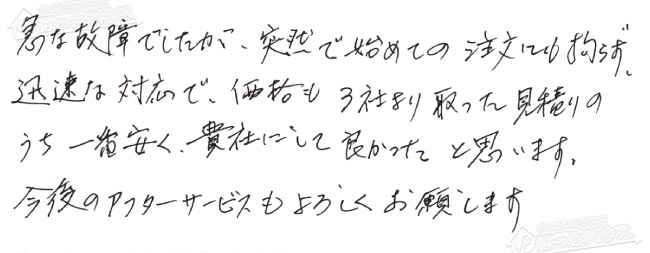 急な故障でしたが、突然で始めての注文にも拘らず、
迅速な対応で、価格も3社より取った見積りの
うち一番安く、貴社にして良かったと思います。
今後のアフターサービスもよろしくお願します